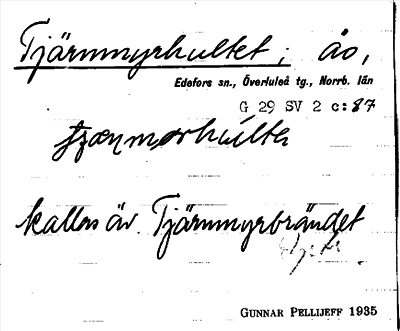 Tjärnmyrhultet; ås,
Edefors sn., Överluleå tg., Norrb. län
G 29 SV 2 c:87
kallas äv. Tjärnmyrbrändet
GUNNAR PELLIJEFF 1935